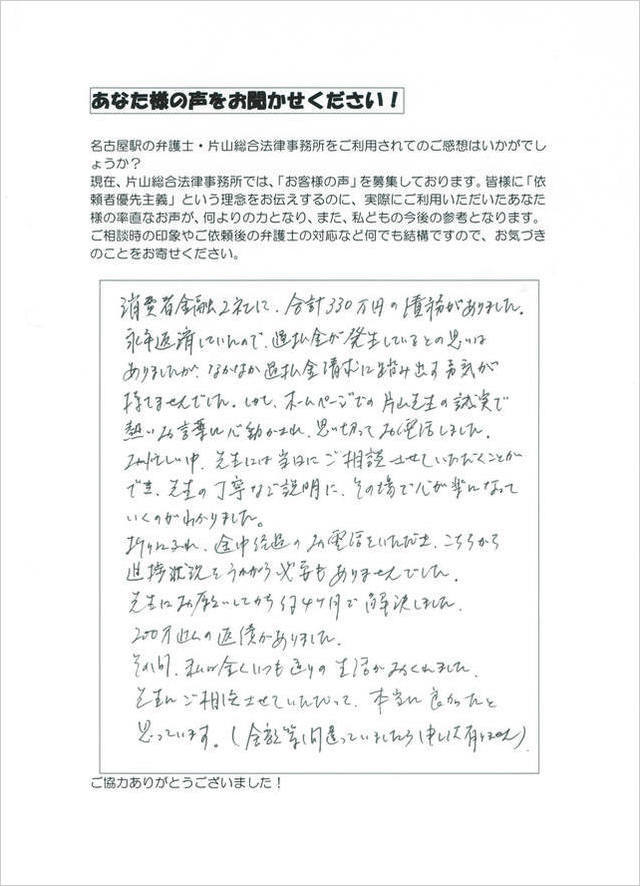 あなた様の声をお聞かせください！
名古屋駅の弁護士・片山総合法律事務所をご利用されてのご感想はいかがでし
ょうか？
現在、片山総合法律事務所では、「お客様の声」を募集しております。皆様に「依
頼者優先主義」という理念をお伝えするのに、実際にご利用いただいたあなた
様の率直なお声が、何よりの力となり、また、私どもの今後の参考となります。
ご相談時の印象やご依頼後の弁護士の対応など何でも結構ですので、お気づき
のことをお寄せください。
消費者金融2社に、合計330万円の債務がありました。
永年返済していたので、過払金が発生しているとの思いは
ありましたが、なかなか過払金請求に踏み出す勇気が
持てませんでした。しかし、ホームページでの片山先生の誠実で
熱いお言葉に心動かされ、思い切ってお電話しました。
お忙しい中、先生には当日にご相談させていただくことが
でき、先生の丁寧なご説明に、その場で心が楽になって
いくのがわかりました。
折りにふれ、途中経過のお電話をいただき、こちらから
進捗状況をうかがう必要もありませんでした。
先生にお願いしてから約4ヶ月で解決しました。
200万以上の返還がありました。
その間、私は全くいつも通りの生活がおくれました。
先生にご相談させていただいて、本当に良かったと
思っています。（金額等間違っていましたら申し訳有りません）
ご協力ありがとうございました！